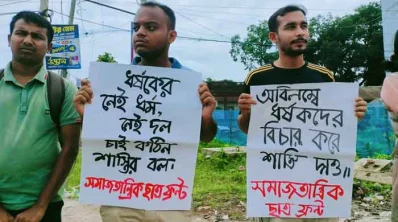 ধর্ষকের
নেই ধর্ম,
নেই দল
চাই কঠিন
শাস্তির বল
সমাজতান্ত্রিক ছাত্র ফ্রন্ট
অবিলম্বে
ধর্ষকদের
বিচার করে
শাস্তি দাও॥
সমাজতান্ত্রিক
ছাত্র ফ্রন্ট